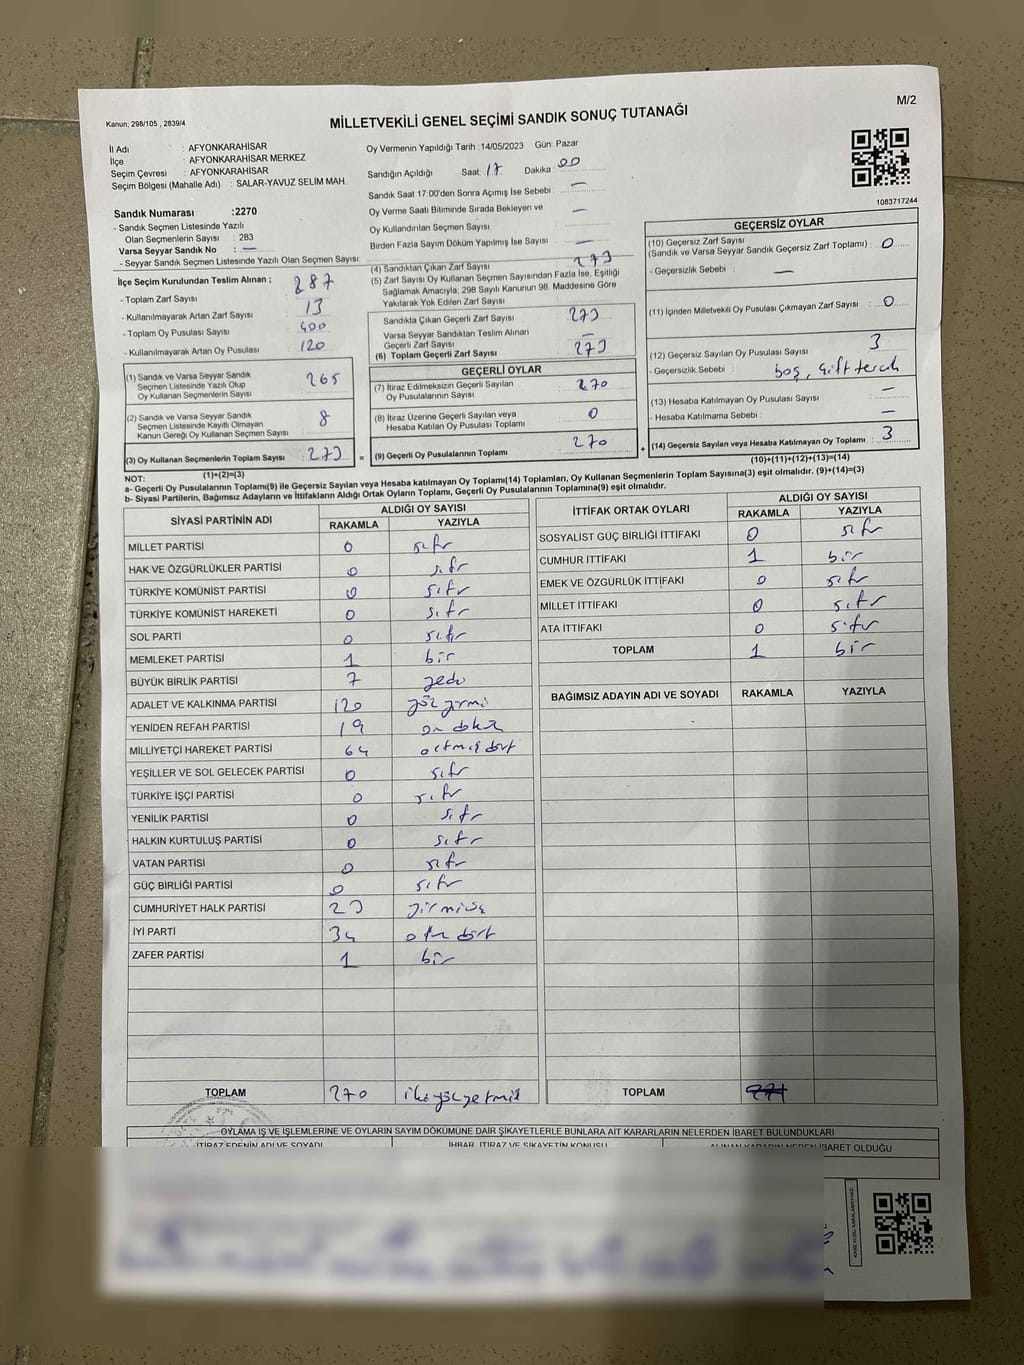 M/2
Kanun; 298/105 , 2839/4
MİLLETVEKİLİ GENEL SEÇİMİ SANDIK SONUÇ TUTANAĞI
İl Adı : AFYONKARAHİSAR
İlçe : AFYONKARAHİSAR MERKEZ
Seçim Çevresi : AFYONKARAHİSAR
Seçim Bölgesi (Mahalle Adı) : SALAR-YAVUZ SELİM MAH.
Sandık Numarası :2270
- Sandık Seçmen Listesinde Yazılı
Olan Seçmenlerin Sayısı : 283
Varsa Seyyar Sandık No : —
- Seyyar Sandık Seçmen Listesinde Yazılı Olan Seçmen Sayısı:
Oy Vermenin Yapıldığı Tarih :14/05/2023 Gün: Pazar
Sandığın Açıldığı Saat: 17 Dakika : 00
Sandık Saat 17:00'den Sonra Açımış İse Sebebi : —
Oy Verme Saati Bitiminde Sırada Bekleyen ve : —
Oy Kullandırılan Seçmen Sayısı
Birden Fazla Sayım Döküm Yapılmış İse Sayısı : —
1083717244
İlçe Seçim Kurulundan Teslim Alınan ;
- Toplam Zarf Sayısı : 287
- Kullanılmayarak Artan Zarf Sayısı : 13
- Toplam Oy Pusulası Sayısı : 400
- Kullanılmayarak Artan Oy Pusulası : 120
(1) Sandık ve Varsa Seyyar Sandık
Seçmen Listesinde Yazılı Olup
Oy Kullanan Seçmenlerin Sayısı : 265
(2) Sandık ve Varsa Seyyar Sandık
Seçmen Listesinde Kayıtlı Olmayan
Kanun Gereği Oy Kullanan Seçmen Sayısı : 8
(3) Oy Kullanan Seçmenlerin Toplam Sayısı : 273
(1)+(2)=(3)
(4) Sandıktan Çıkan Zarf Sayısı : 273
(5) Zarf Sayısı Oy Kullanan Seçmen Sayısından Fazla İse, Eşitliği
Sağlamak Amacıyla, 298 Sayılı Kanunun 98. Maddesine Göre
Yakılarak Yok Edilen Zarf Sayısı :
Sandıkta Çıkan Geçerli Zarf Sayısı : 273
Varsa Seyyar Sandıktan Teslim Alınan
Geçerli Zarf Sayısı : —
(6) Toplam Geçerli Zarf Sayısı : 273
GEÇERLİ OYLAR
(7) İtiraz Edilmeksizin Geçerli Sayılan
Oy Pusulalarının Sayısı : 270
(8) İtiraz Üzerine Geçerli Sayılan veya
Hesaba Katılan Oy Pusulası Toplamı : 0
= (9) Geçerli Oy Pusulalarının Toplamı : 270 +
GEÇERSİZ OYLAR
(10) Geçersiz Zarf Sayısı
(Sandık ve Varsa Seyyar Sandık Geçersiz Zarf Toplamı) : 0
- Geçersizlik Sebebi : —
(11) İçinden Milletvekili Oy Pusulası Çıkmayan Zarf Sayısı : 0
(12) Geçersiz Sayılan Oy Pusulası Sayısı : 3
- Geçersizlik Sebebi : boş, çift tercih
(13) Hesaba Katılmayan Oy Pusulası Sayısı : —
- Hesaba Katılmama Sebebi : —
(14) Geçersiz Sayılan veya Hesaba Katılmayan Oy Toplamı : 3
(10)+(11)+(12)+(13)=(14)
NOT:
a- Geçerli Oy Pusulalarının Toplamı(9) ile Geçersiz Sayılan veya Hesaba Katılmayan Oy Toplamı(14) Toplamları, Oy Kullanan Seçmenlerin Toplam Sayısına(3) eşit olmalıdır. (9)+(14)=(3)
b- Siyasi Partilerin, Bağımsız Adayların ve İttifakların Aldığı Ortak Oyların Toplamı, Geçerli Oy Pusulalarının Toplamına(9) eşit olmalıdır.
SİYASİ PARTİNİN ADI ALDIĞI OY SAYISI
RAKAMLA YAZIYLA
MİLLET PARTİSİ 0 sıfır
HAK VE ÖZGÜRLÜKLER PARTİSİ 0 sıfır
TÜRKİYE KOMÜNİST PARTİSİ 0 sıfır
TÜRKİYE KOMÜNİST HAREKETİ 0 sıfır
SOL PARTİ 0 sıfır
MEMLEKET PARTİSİ 1 bir
BÜYÜK BİRLİK PARTİSİ 7 yedi
ADALET VE KALKINMA PARTİSİ 120 yüz yirmi
YENİDEN REFAH PARTİSİ 19 on dokuz
MİLLİYETÇİ HAREKET PARTİSİ 64 altmış dört
YEŞİLLER VE SOL GELECEK PARTİSİ 0 sıfır
TÜRKİYE İŞÇİ PARTİSİ 0 sıfır
YENİLİK PARTİSİ 0 sıfır
HALKIN KURTULUŞ PARTİSİ 0 sıfır
VATAN PARTİSİ 0 sıfır
GÜÇ BİRLİĞİ PARTİSİ 0 sıfır
CUMHURİYET HALK PARTİSİ 23 yirmi üç
İYİ PARTİ 34 otuz dört
ZAFER PARTİSİ 1 bir
TOPLAM 270 iki yüz yetmiş
İTTİFAK ORTAK OYLARI ALDIĞI OY SAYISI
RAKAMLA YAZIYLA
SOSYALİST GÜÇ BİRLİĞİ İTTİFAKI 0 sıfır
CUMHUR İTTİFAKI 1 bir
EMEK VE ÖZGÜRLÜK İTTİFAKI 0 sıfır
MİLLET İTTİFAKI 0 sıfır
ATA İTTİFAKI 0 sıfır
TOPLAM 1 bir
BAĞIMSIZ ADAYIN ADI VE SOYADI RAKAMLA YAZIYLA
TOPLAM 271
OYLAMA İŞ VE İŞLEMLERİNE VE OYLARIN SAYIM DÖKÜMÜNE DAİR ŞİKAYETLERLE BUNLARA AİT KARARLARIN NELERDEN İBARET BULUNDUKLARI
İTİRAZ EDENİN ADI VE SOYADI İHBAR, İTİRAZ VE ŞİKAYETİN KONUSU ALINAN KARARIN NEDEN İBARET OLDUĞU